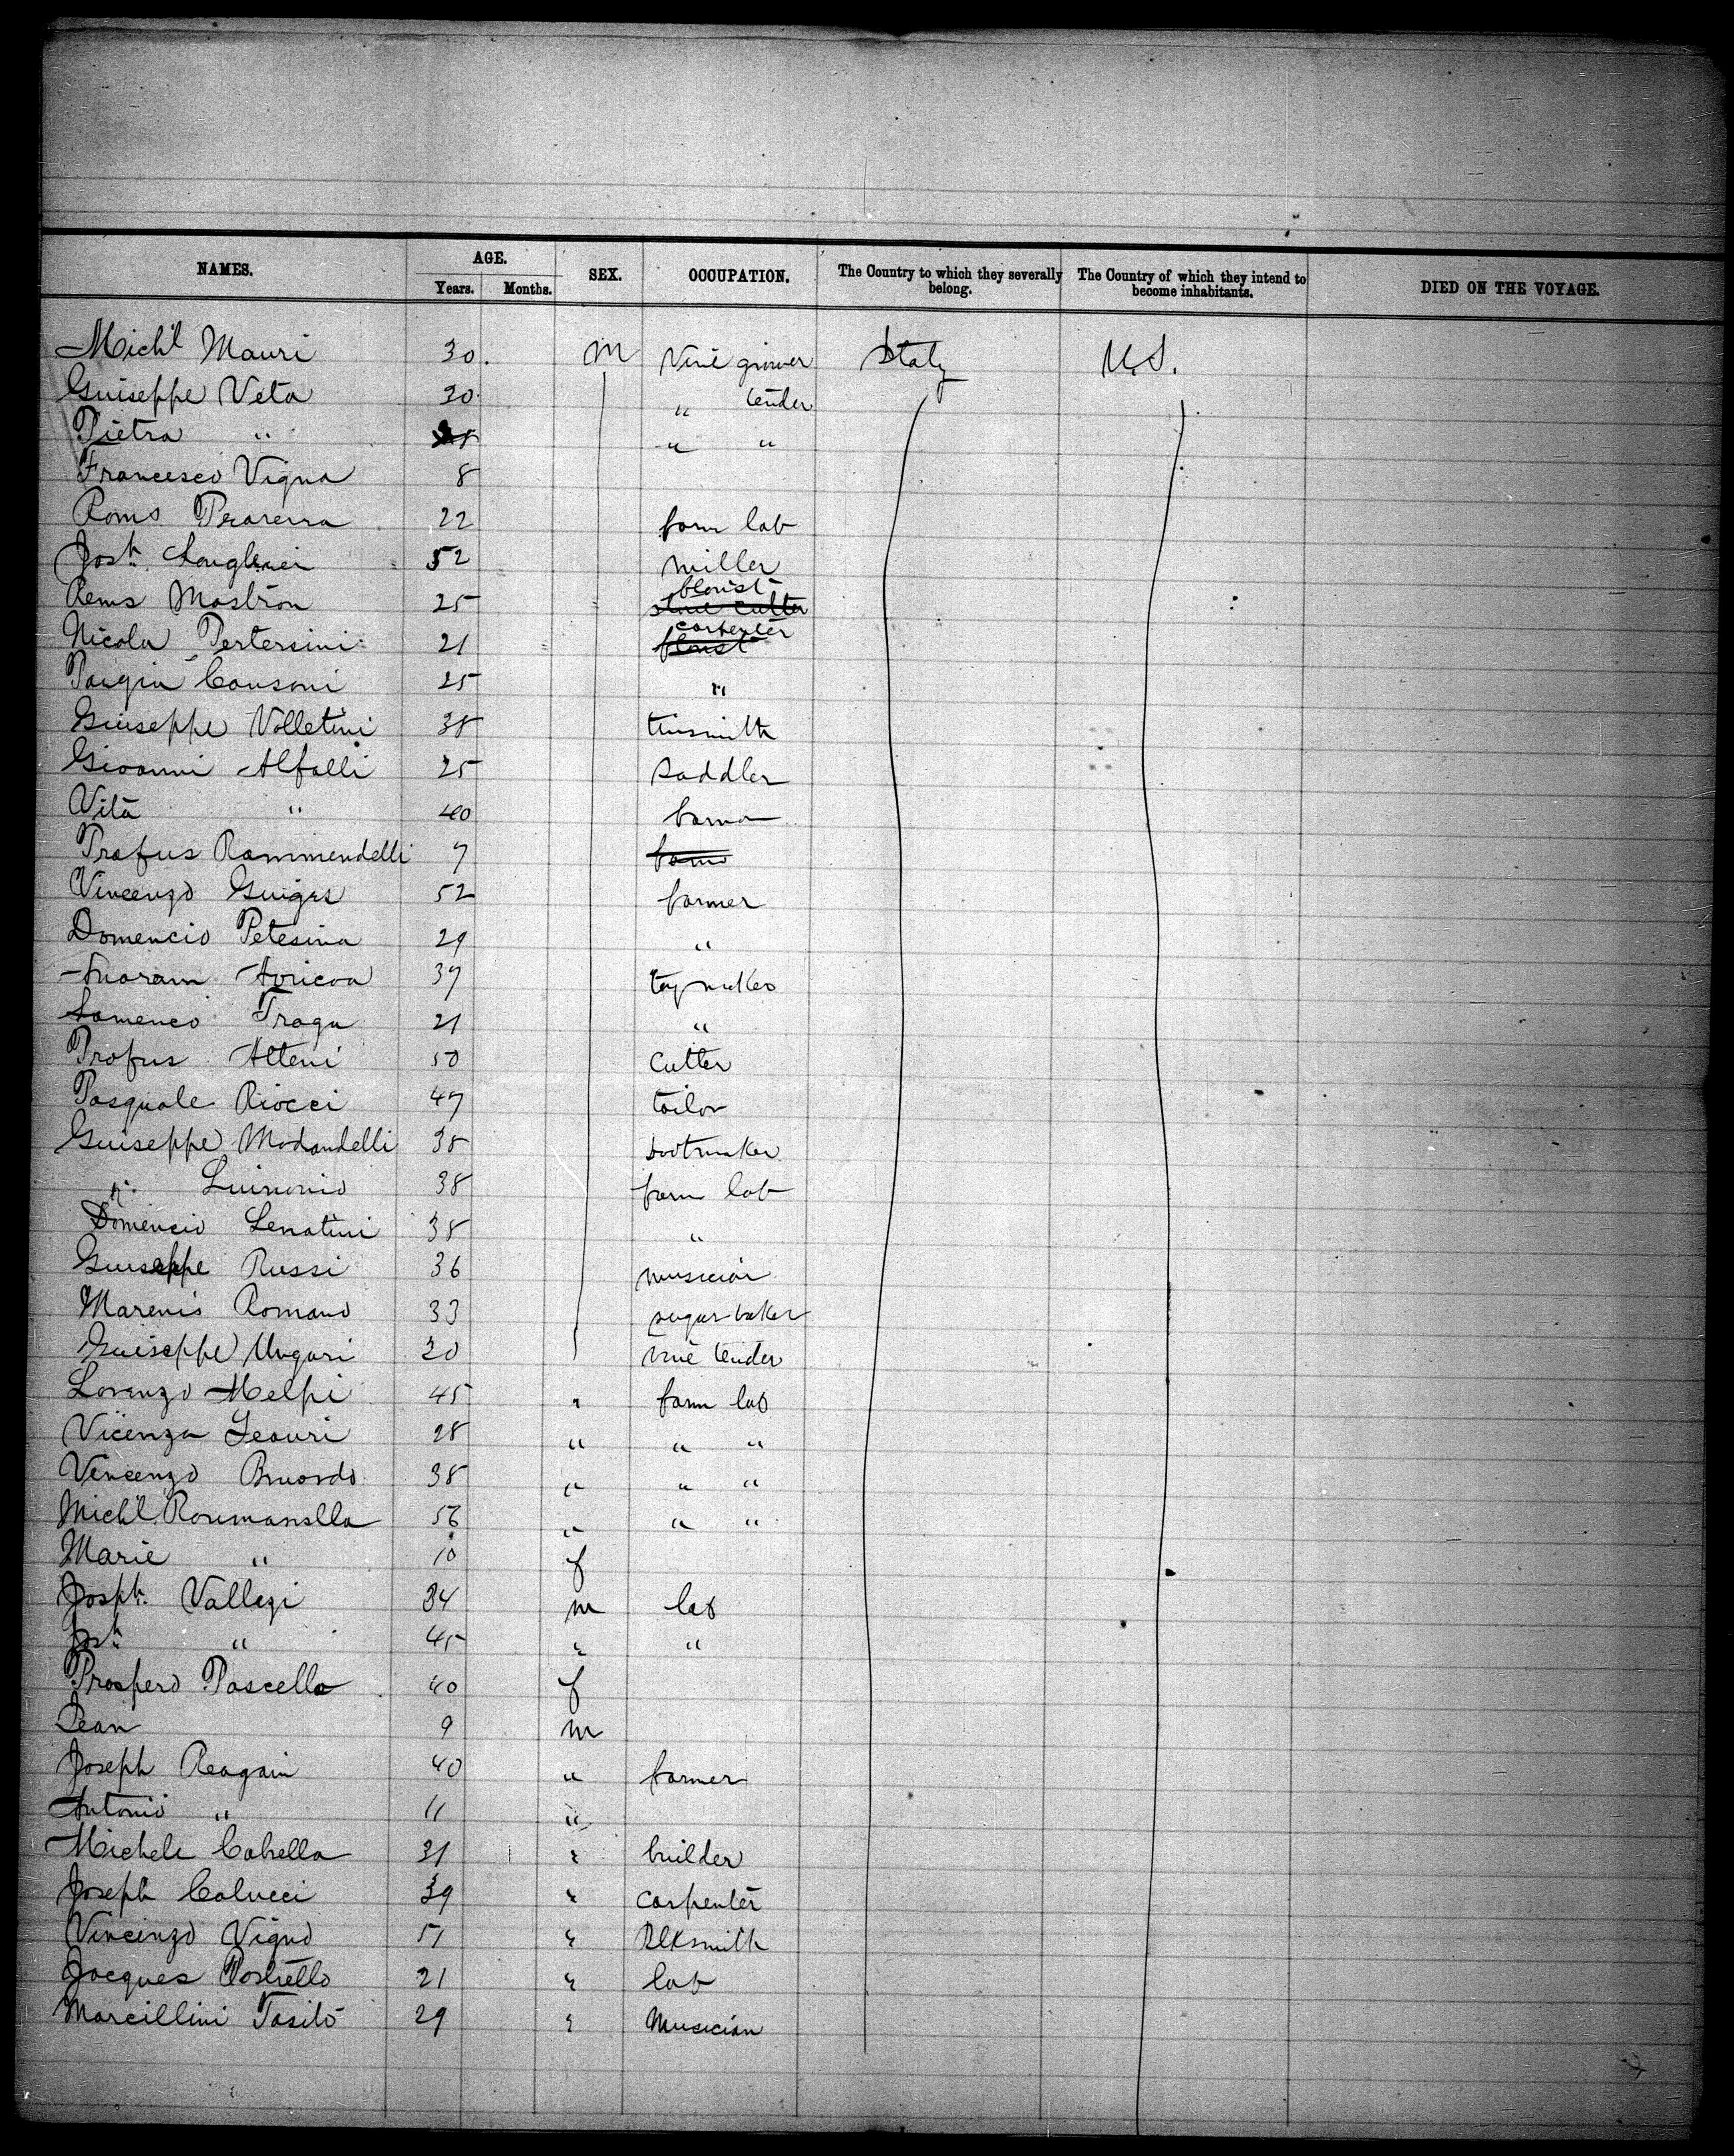 NAMES. AGE. SEX. OCCUPATION. The Country to which they severally belong. The Country of which they intend to become inhabitants. DIED ON THE VOYAGE.
Years. Months.
Mich'l Mauri 30. M Vine grower Italy U.S.
Guiseppe Veta 30 " tender
Pietra " " "
Francesco Vigna 8
Roms 22 farm lab
Josh. 52 miller
Rems Mastron 25 florist stone cutter
Nicola Pertersini 21 carpenter florist
Consoni 25 "
Guiseppe Volletini 38 tinsmith
Gioanni Alfalli 25 Saddler
Vita " 40
Profus Rommendelli 7
Vincenzo 52 farmer
Domencio Petesina 29 "
37 toy maker
Tragu 21 "
Profus Alteni 50 Cutter
Pasquale Riocci 47 tailor
Guiseppe Modandelli 38 bootmaker
" 38 farm lab
Domencio Lenatini 38 "
Guiseppe Russi 36 musician
Marenis Romano 33 sugar baker
Guiseppe Ungari 20 vine tender
Lorenzo Melpi 45 " farm lab
Vicenza Leouri 28 " " "
Vincenzo 38 " " "
Mich'l. 56 " " "
Marie " 10 f
Josph. Vallezi 34 m lab
Josh " 45 " "
Prospero Pascella 40 f
Jean 9 m
Joseph Reagain 40 " farmer
Antonio " 11 "
Michele Cabrella 31 " builder
Joseph Colucci 39 " Carpenter
Vincenzo Vigno 51 " Blksmith
Jacques 21 " lab
Marcillini Tasito 29 " Musician